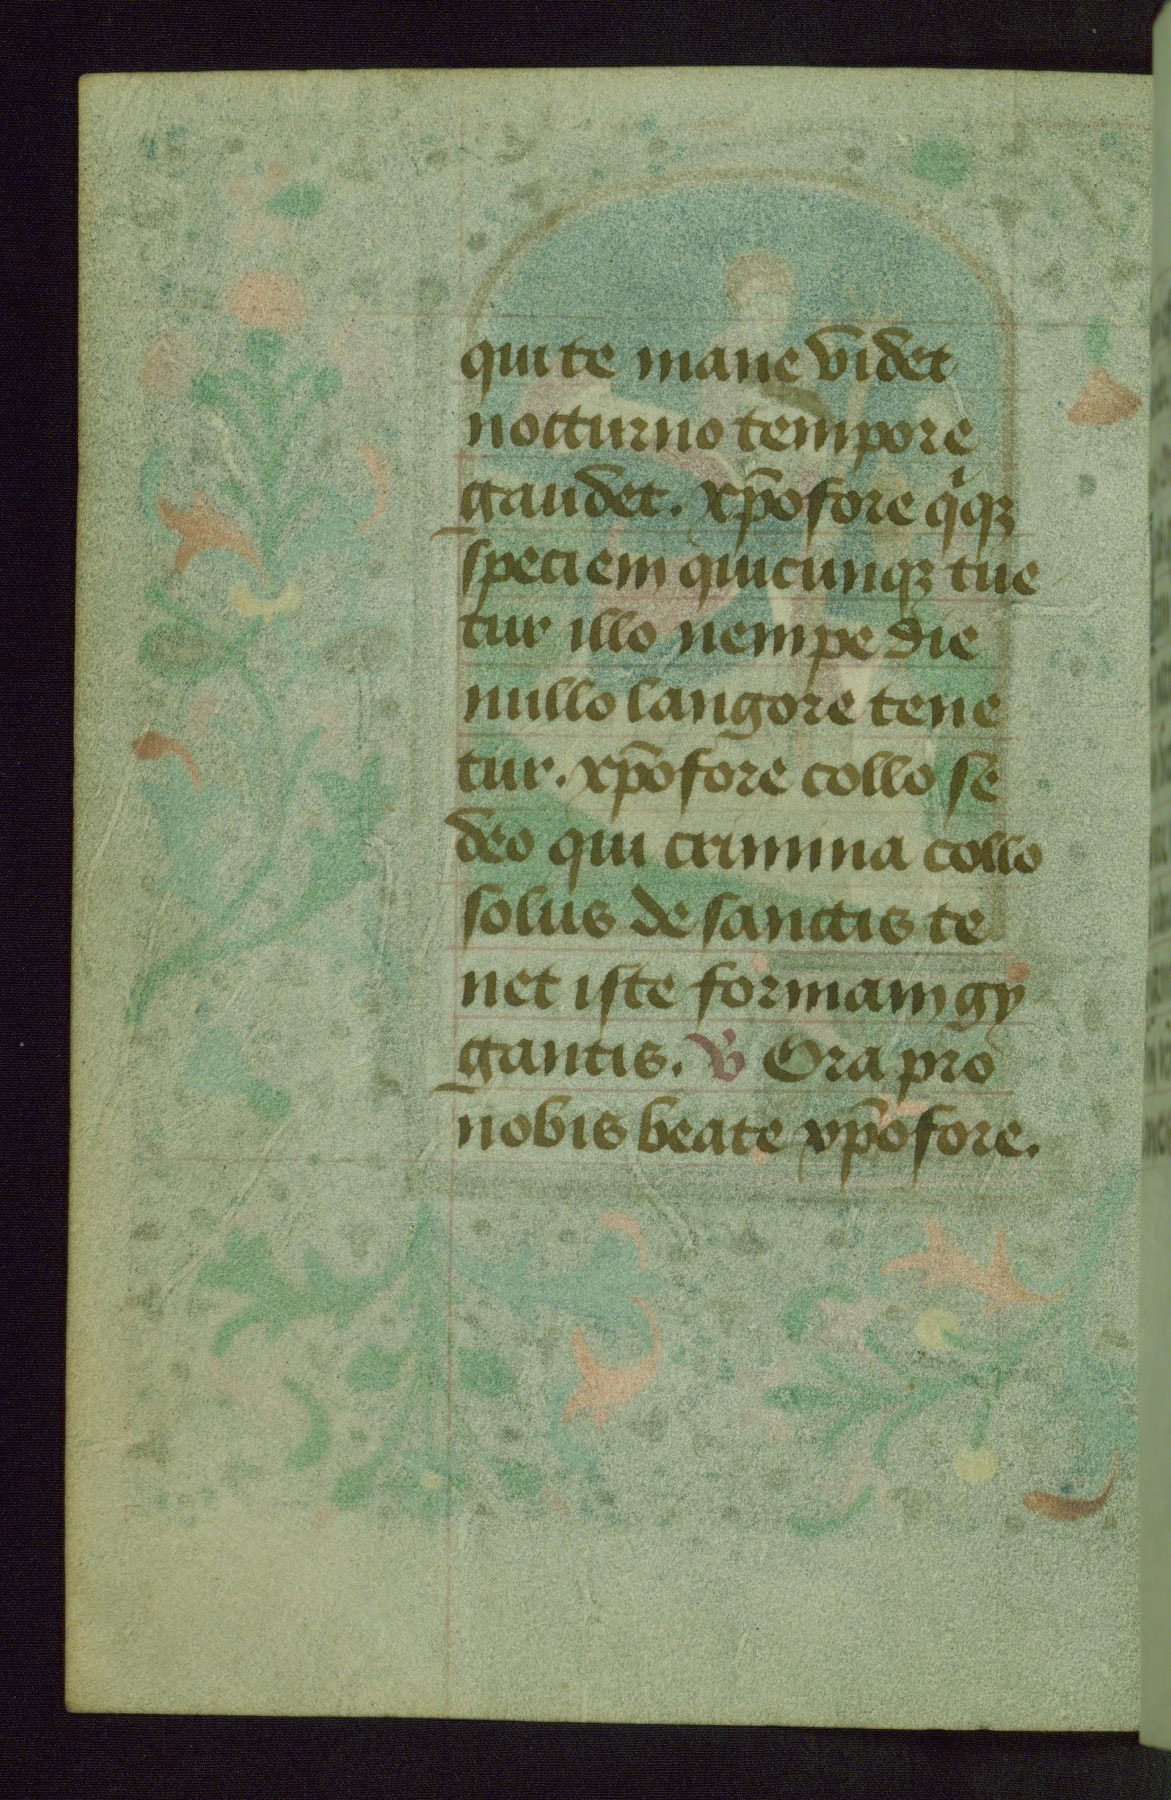 qui te mane videt
nocturno tempore
gaudet. xp̄ofore qͥqꝫ
speciem quicunqꝫ tue
tur illo nempe die
nullo langore tene
tur. xp̄ofore collo se
deo qui crimina collo
solus de sanctis te
net iste formam gy
gantis. ℣ Ora pro
nobis beate xp̄ofore.